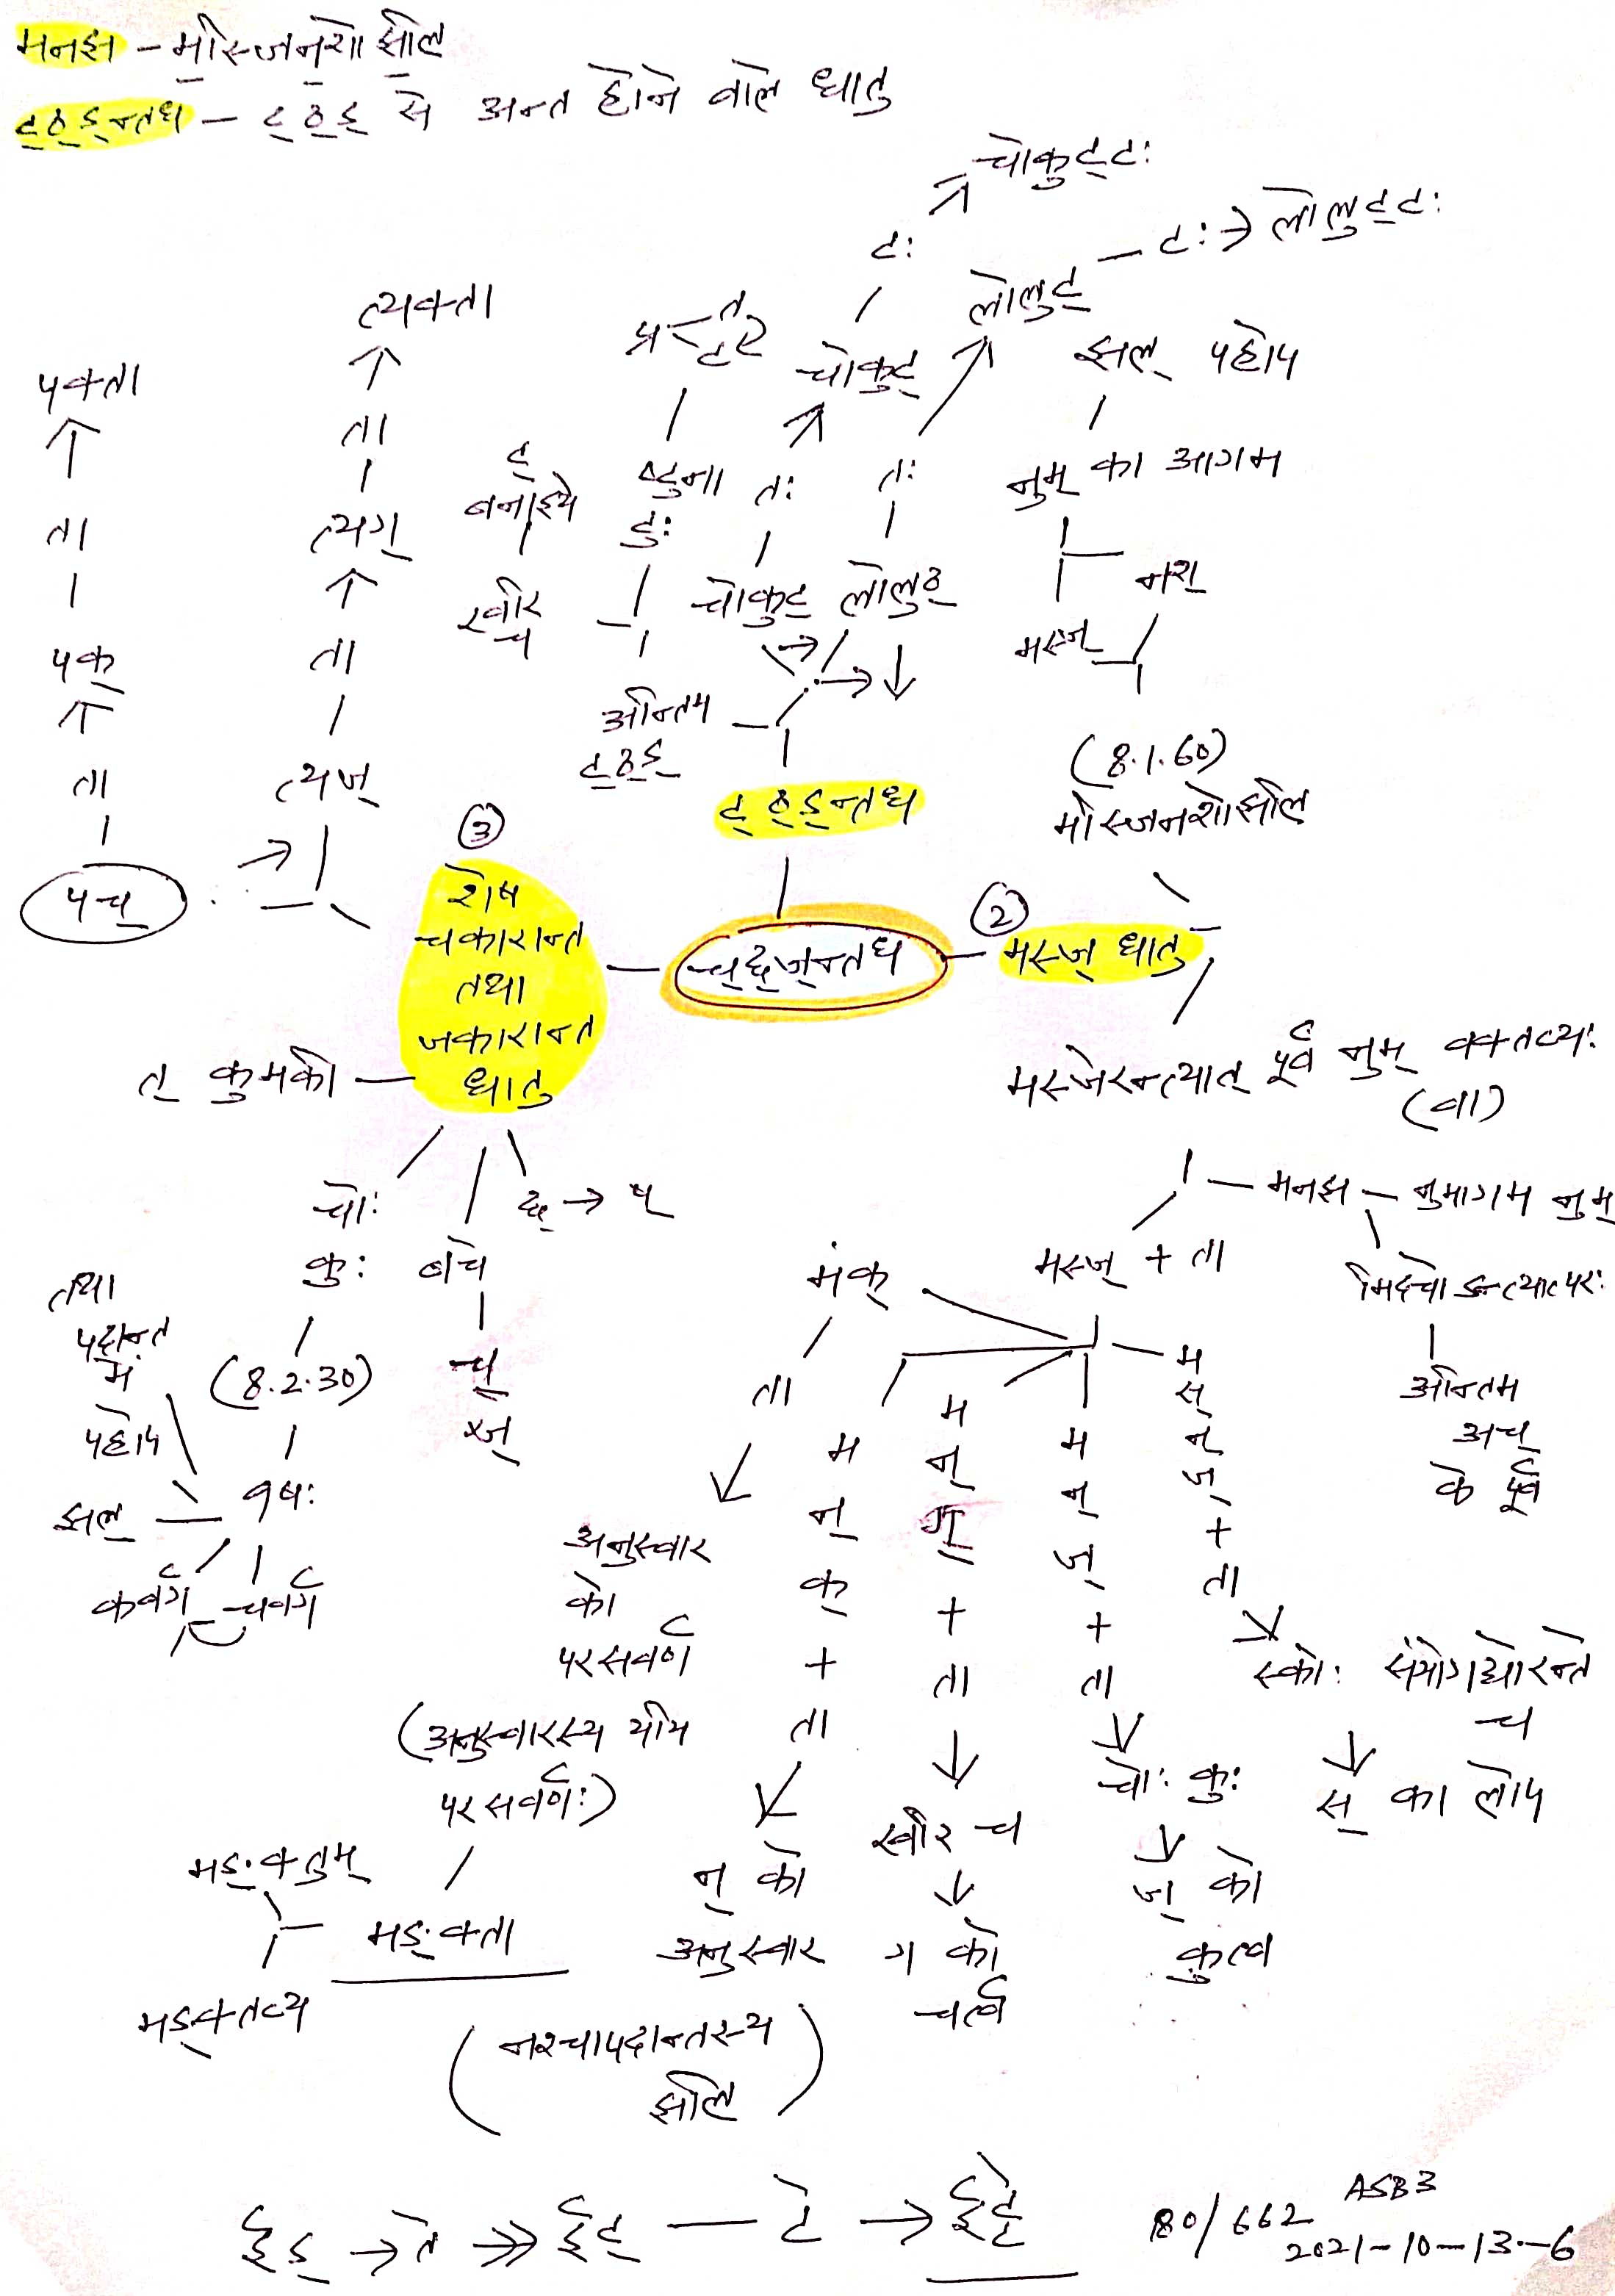 मनझ – मस्जिनशोर्झलि
ट्ठ्ड्न्तध – ट् ठ् ड् से अन्त होने वाले धातु
चोकुट्टः
टः
लोलुट् – टः → लोलुट्टः
त्यक्ता
त
टरे
चोकुट्
झल् पहोप
पक्ता
ता
ट्
बनाइये
ष्टुना
ष्टुः
तः
तः
नुम् का आगम
ता
त्यग्
खरि
च
चोकुट्
लोलुठ्
नश्
मस्ज्
पक्
ता
अन्तिम
ट् ठ् ड्
(8.1.60)
मस्जिनशोर्झलि
ता
त्यज्
ट् ठ् ड्न्तध
③
पच्
शेष
चकारान्त
तथा
जकारान्त
धातु
च्छ्ज्न्तध
②
मस्ज् धातु
त् कुमको
मस्जेरन्त्यात् पूर्व नुम् वक्तव्यः
(वा)
चोः
कुः
बचे
च्
ज्
छ् → ष्
मनझ – नुमागम नुम्
मंक्
मस्ज् + ता
मिदचोऽन्त्यात्परः
तथा
पदान्त
में
पहोप
(8.2.30)
झल्
कवर्ग
चवर्ग
ता
म
न्
क्
+
ता
म
न्
ग्
+
ता
म
न्
ज्
+
ता
म
स्
न्
ज्
+
ता
अन्तिम
अच्
के पूर्व
अनुस्वार
को
परसवर्ण
(अनुस्वारस्य ययि
परसवर्णः)
स्कोः संयोगाद्योरन्ते
च
स् का लोप
चोः कुः
ज् को
कुत्व
खरि च
ग को
चर्त्व
न् को
अनुस्वार
मङ्क्तुम्
मङ्क्ता
मङ्क्तव्य
(नश्चापदान्तस्य
झलि)
ईड् → ते ↠ ईट् — टे → ईट्टे
80/662
ASB3
2021-10-13-6